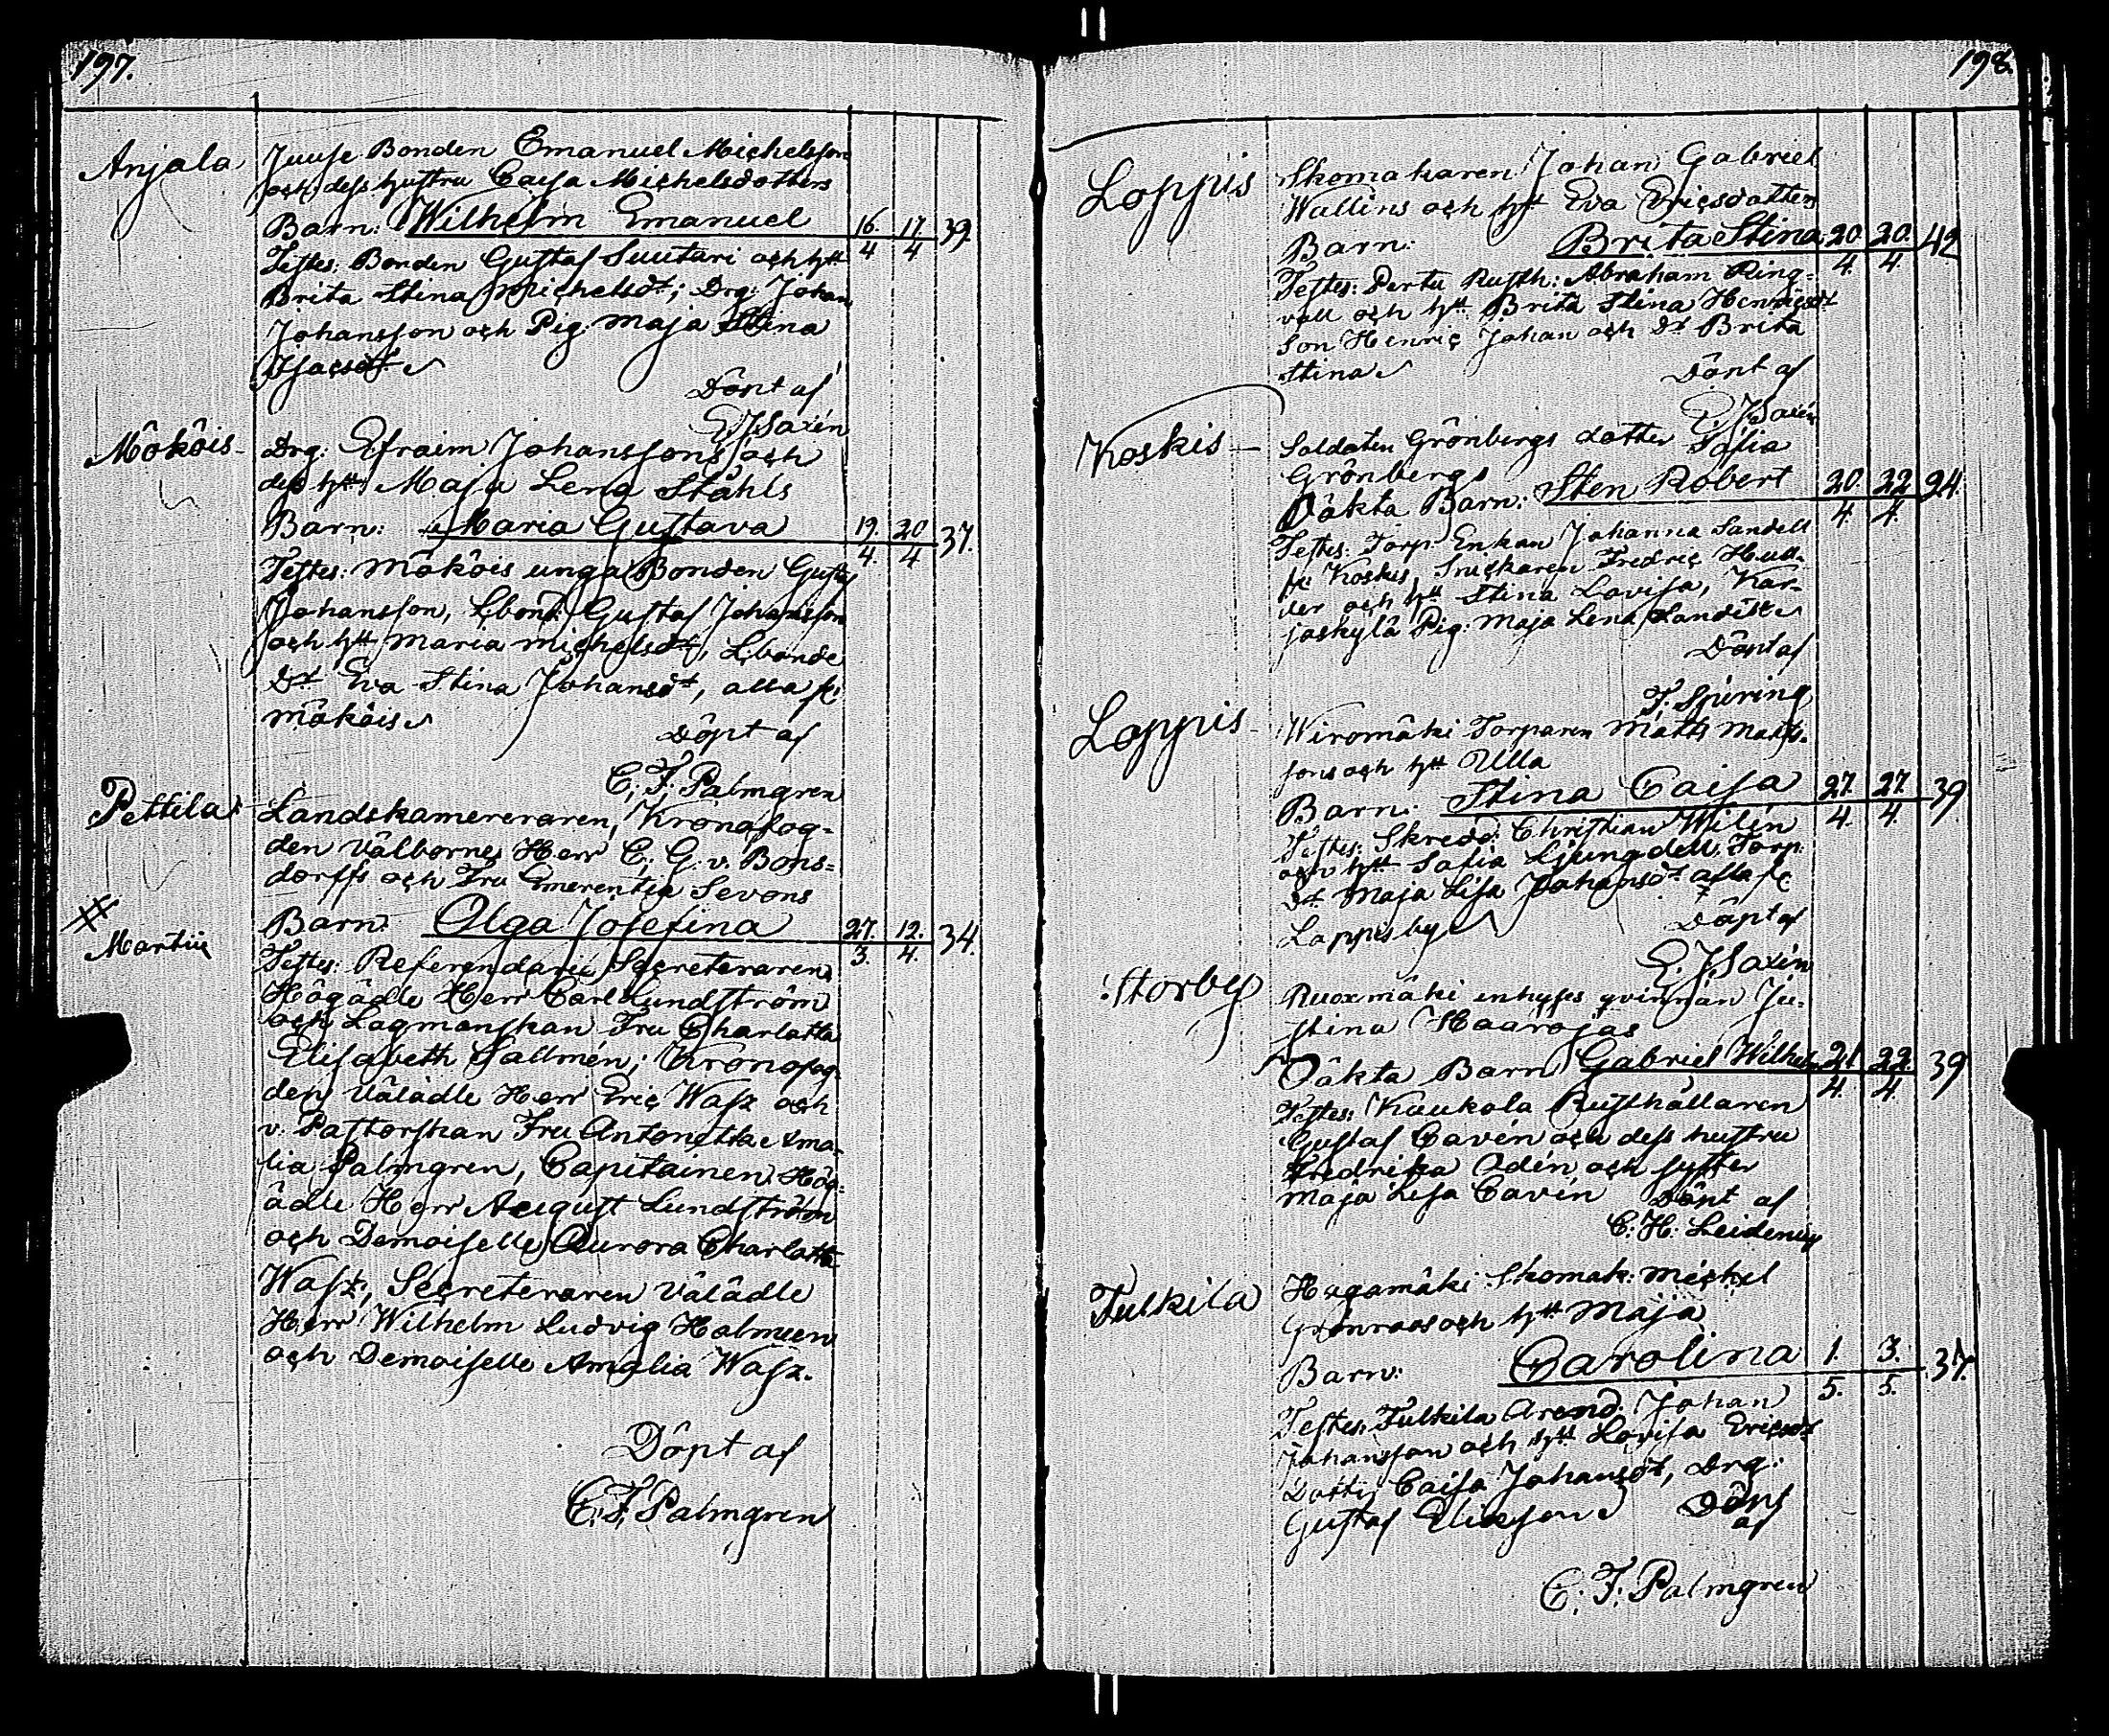 197.
Anjala
Juuse Bonden Emanuel Michelsson
och dess hustru Caisa Michelsdotters
Barn: Wilhelm Emanuel 16. 17. 39.
4 4
Testes: Bonden Gustaf Suutari och htt
Brita Stina Michelsdt; Drg: Johan
Johansson och Pig: Maja Stina
Isacsdt
Döpt af
E. J. Saxén
Mököis
Drg: Efraim Johanssons och
dess htt Maja Lena Ståhls
Barn: Maria Gustava 19. 20 37.
4. 4
Testes: Mököis unga Bonden Gustaf
Johansson, Lbond: Gustaf Johansson
och htt Maria Michelsdt, Lbonde
Dt Eva Stina Johansdt, alla fr
Mököis
Döpt af
C. F. Palmgren
Pettila
Landskamereraren, Kronofog-
den Välborne Herr C. G. v. Bons-
dorffs och Fru Emerentia Sevons
Barn: Olga Josefina 27. 12. 34.
Martii 3. 4.
Testes: Referendarie Secreteraren
Högädle Herr Carl Lundström
och Lagmanskan Fru Charlotta
Elisabeth Sallmén; Kronofog-
den Välädle Herr Eric Wasz och
v. Pastorskan Fru Antonetta Ama-
lia Palmgren, Capitainen Hög-
ädle Herr August Lundström
och Demoiselle Aurora Charlotta
Wasz, Secreteraren Välädle
Herr Wilhelm Ludvig Holmeen
och Demoiselle Amalia Wasz.
Döpt af
C. F. Palmgren
198.
Loppis
Skomakaren Johan Gabriel
Wallins och htt Eva Ericsdotters
Barn: Brita Stina 20 20. 42
4. 4.
Testes: Pertu Rusth: Abraham Ring-
vall och htt Brita Stina Henricsdt
Son Henric Johan och Dt Brita
Stina
Döpt af
E. J. Saxén
Koskis
Soldaten Grönbergs dotter Sofia
Grönbergs
Oäkta Barn: Sten Robert 20. 22 24.
4. 4.
Testes: Torp: Enkan Johanna Sandell
fr Koskis, Snickaren Fredric Hud-
der och htt Stina Lovisa, Kar-
jaskylä Pig: Maja Lena
Döpt af
T. Spüring
Loppis
Wiromäki Torparen Matts Matts-
sons och htt Ulla
Barn: Stina Caisa 27. 27. 39
4. 4.
Testes: Skredd: Christian Wilén
och htt Sofia Ljungdell, Torp:
Dt Maja Lisa Johansdt alla fr
Loppis by
Döpt af
E. J. Saxén
Storby
Ruoxmäki inhyses qvinnan Ju-
stina Haarojas
Oäkta Barn Gabriel Wilhelm 21 22. 39
4. 4.
Testes: Kaukola Rusthållaren
Gustaf Cavén och dess hustru
Fredrika Odén och syster
Maja Lisa Cavén Döpt af
C. H. Leidenius
Tulkila
Hagamäki Skomak: Michel
Grönroos och htt Maja
Barn: Carolina 1. 3. 37.
5. 5.
Testes: Tulkila Arend: Johan
Johansson och htt Lovisa Ericsdt
Dotter Caisa Johansdt, Drg:
Gustaf Eliasson Döpt
af
C. F. Palmgren